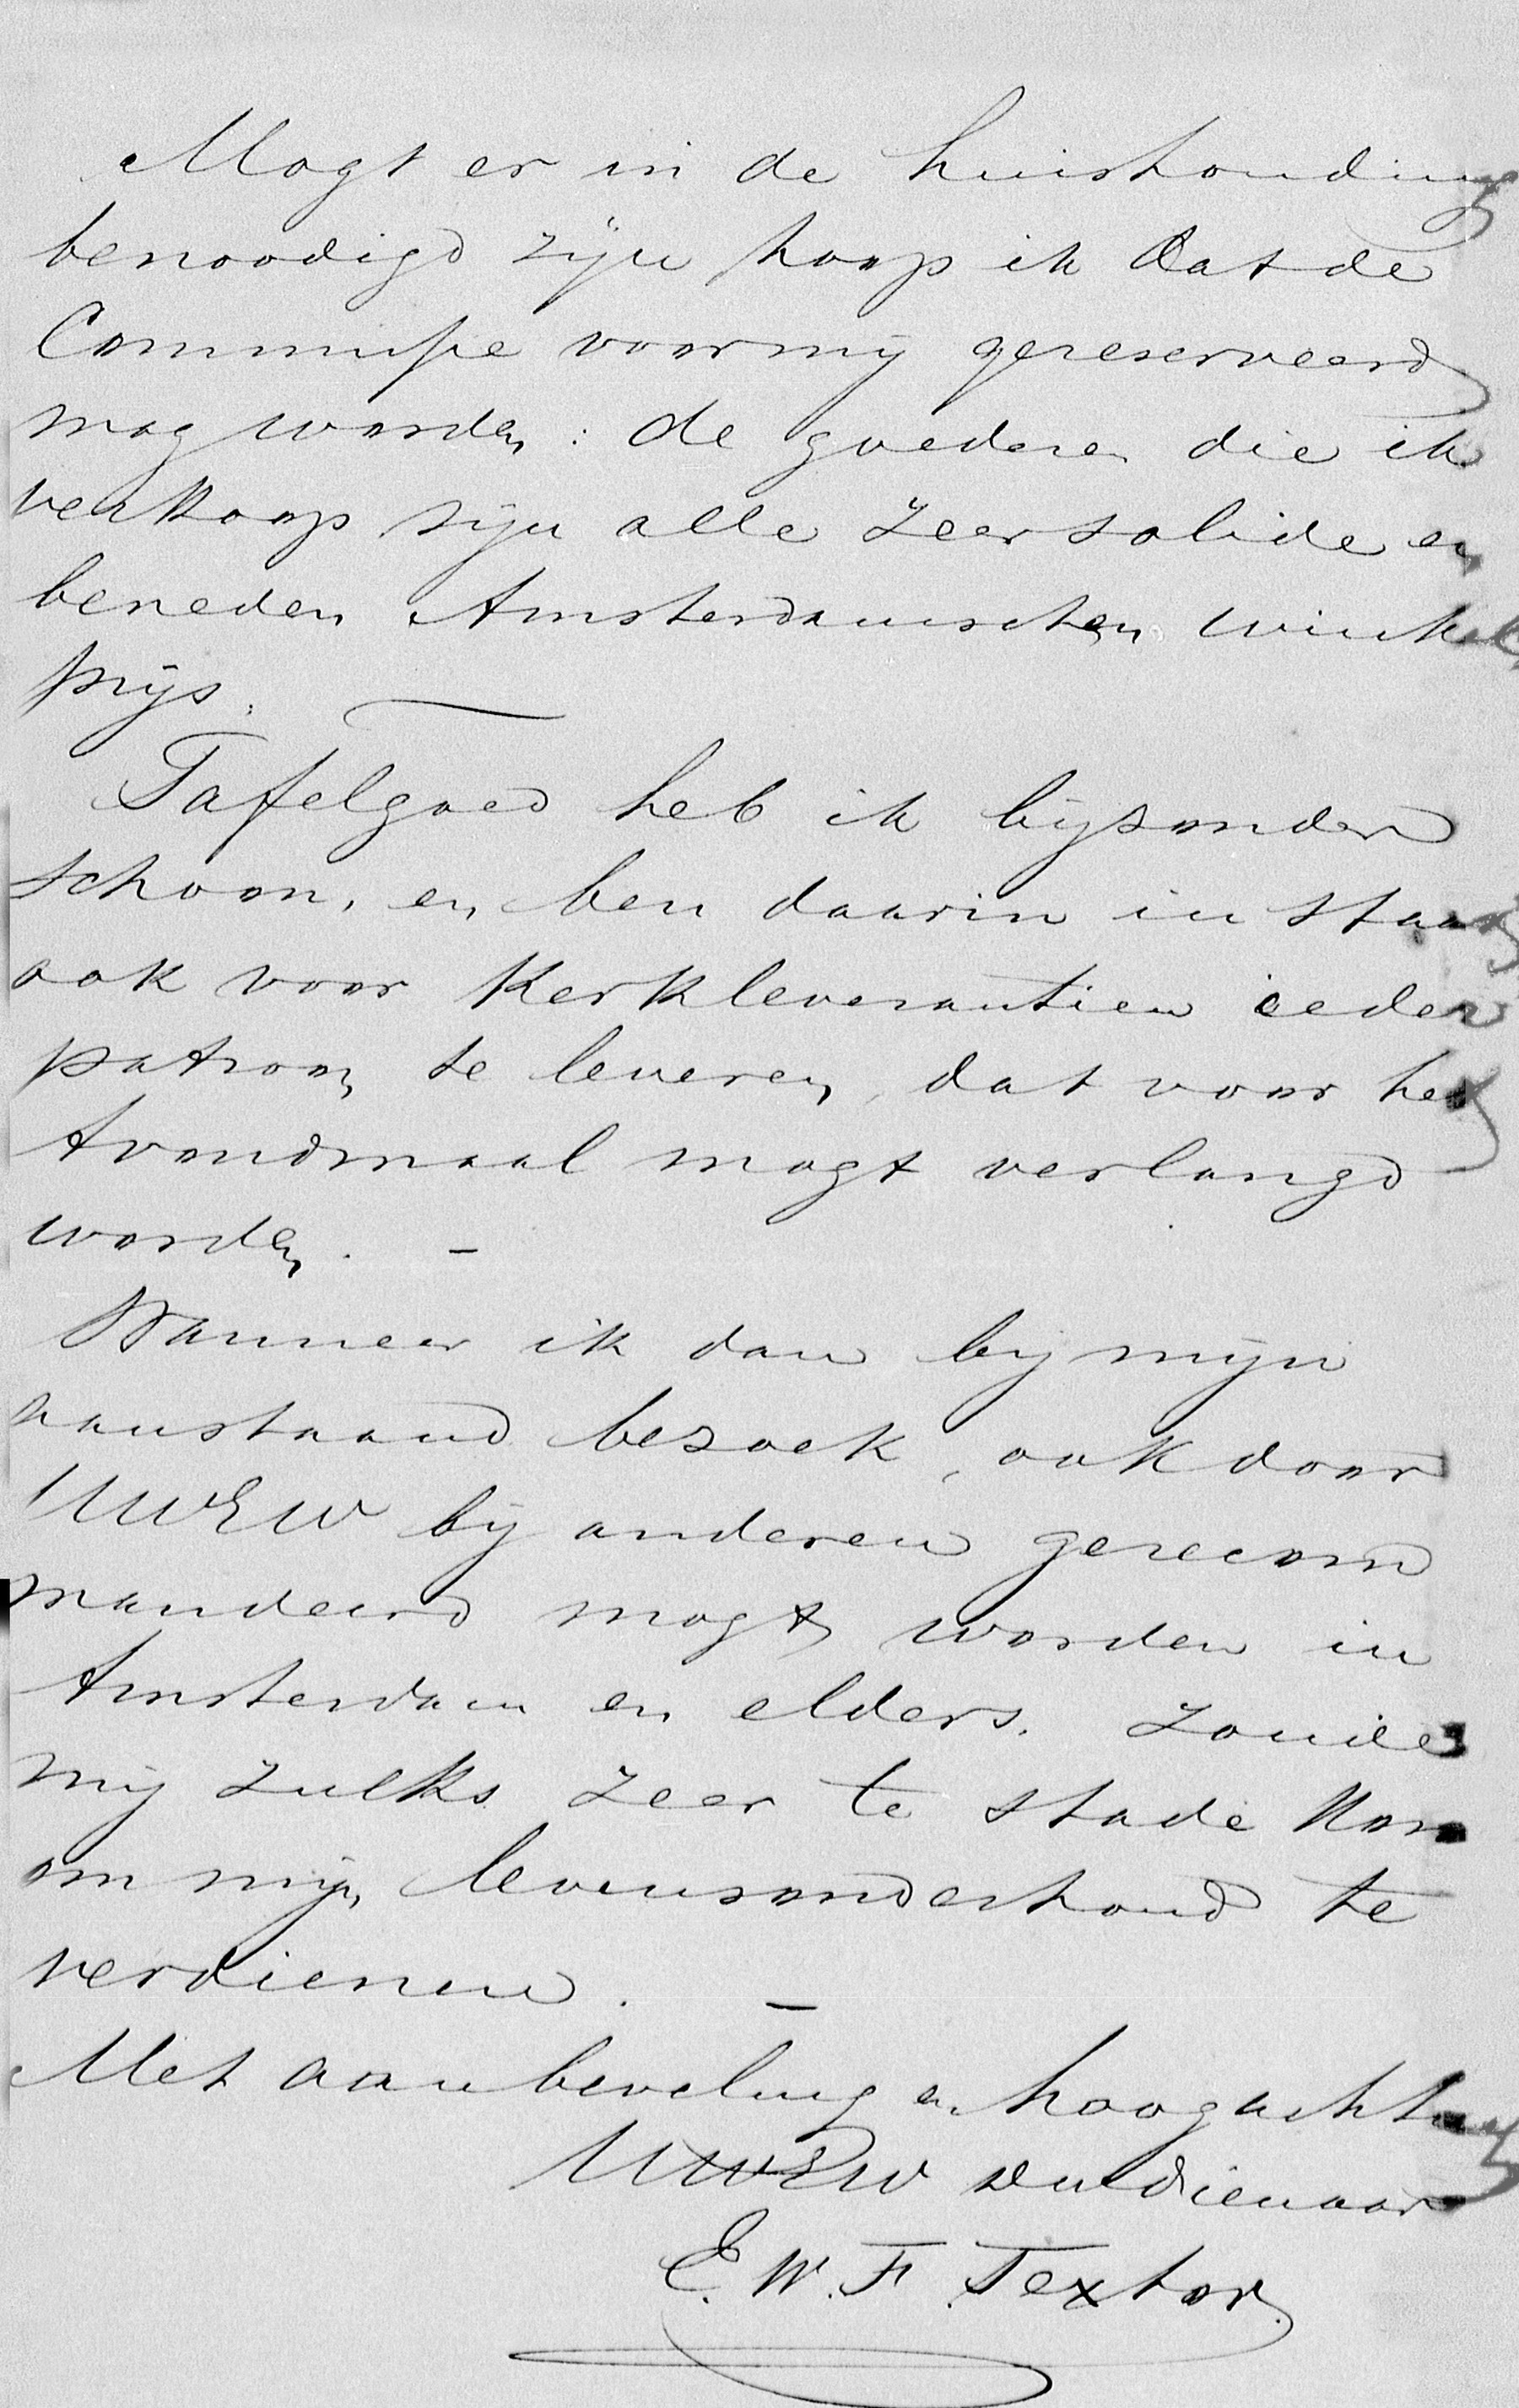 Mogt er in de huishouding
benoodigd zijn hoop ik dat de
Commissie voor mij gereserveerd
mag worden: de goederen die ik
verkoop zijn alle zeer solide en
beneden Amsterdamschen winkel
prijs.
Tafelgoed heb ik bijzonder
schoon, en ben daarin in staat
ook voor Kerkleverantien ieder
patroon te leveren, dat voor het
Avondmaal mogt verlangd
worden. –
Wanneer ik dan bij mijn
aanstaand bezoek, ook door
UWEW bij anderen gerecom
mandeerd mogt worden in
Amsterdam en elders. Zoude
mij zulks zeer te stade kom
om mijn levensonderhoud te
verdienen. –
Met aanbeveling en hoogachting
UWEW dw dienaar
E. W. F. Textor.